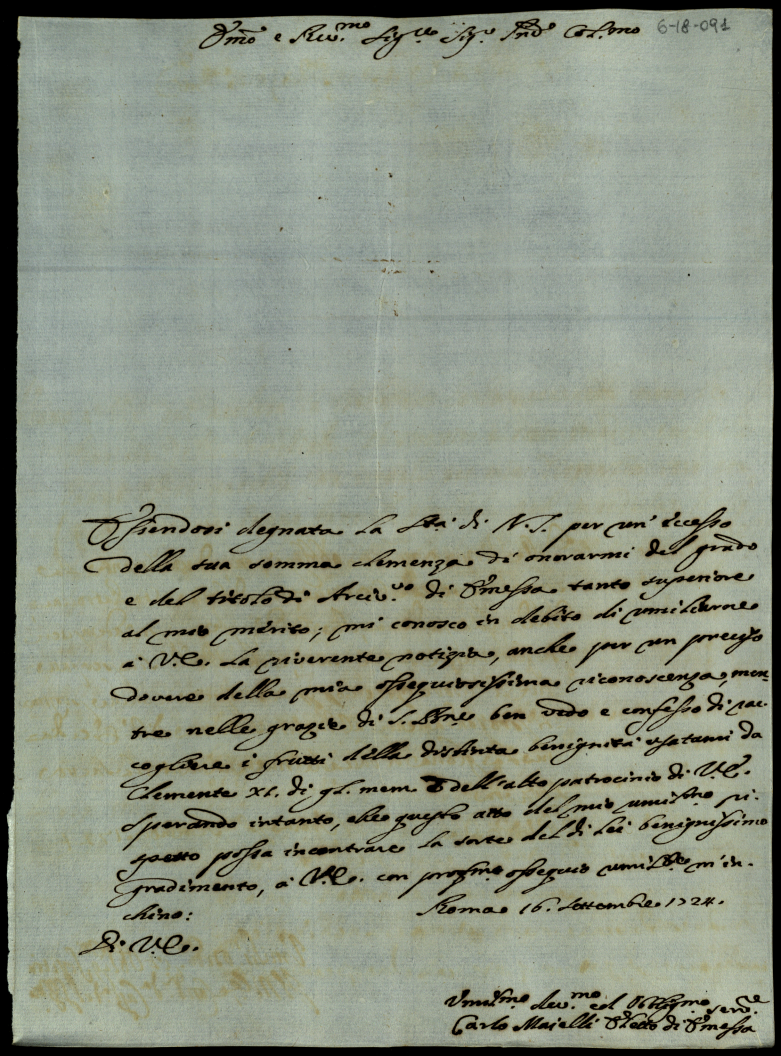 Em̃o e Rev.mo Sig.re Sig.r Prõn Col.mo
6-18-091
Essendosi degnata la S.tà di N.S. per un' eccesso
della sua somma clemenza di onorarmi del grado
e del titolo di Arciv.vo di Emessa tanto superiore
al mio merito; mi conosco in debito di umiliarne
a V.E. la riverente notizia, anche per un preciso
dovere della mia ossequiosissima riconoscenza, men-
tre nelle grazie di S. Bne ben vedo e confesso di rac-
cogliere i frutti della distinta benignità usatami da
Clemente XI. di gl. mem. e dell'alto patrocinio di V.E.
Sperando intanto, che questo atto del mio umilmo ri-
spetto possa incontrare la sorte del di lei benignissimo
gradimento, a V.E. con profmo ossequio umilte m'in-
chino:
Roma 16. Settembre 1724.
Di V.E.
Umilmo dev.mo ed Obbligmo serv.re
Carlo Maielli Eletto di Emessa